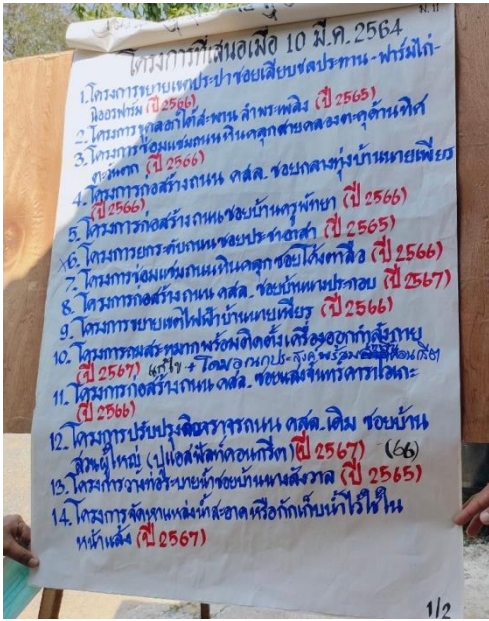 ม.11
โครงการที่เสนอเมื่อ 10 มี.ค. 2564
1. โครงการขยายเขตประปาซอยเลียบชลประทาน - ฟาร์มไก่-
น้ออรฟาร์ม (ปี 2566)
2. โครงการขุดลอกใต้สะพานลำพระเพลิง (ปี 2565)
3. โครงการซ่อมแซมถนนหินคลุกสายคลองตะคุด้านทิศ
ตะวันตก (ปี 2566)
4. โครงการก่อสร้างถนน คสล. ซอยกลางทุ่งบ้านนายเพียร
(ปี 2566)
5. โครงการก่อสร้างถนนซอยบ้านครูพัทยา (ปี 2566)
x6. โครงการยกระดับถนนซอยประชาอาสา (ปี 2565)
7. โครงการซ่อมแซมถนนหินคลุกซอยโค้งตาลือ (ปี 2566)
8. โครงการก่อสร้างถนน คสล. ซอยบ้านนางประกอบ (ปี 2567)
9. โครงการขยายเขตไฟฟ้าบ้านนายเพียร (ปี 2566)
10. โครงการถมสระหมากพร้อมติดตั้งเครื่องออกกำลังกาย
(ปี 2567) แก้ไข + โดมอเนกประสงค์พร้อม
11. โครงการก่อสร้างถนน คสล. ซอยแสงจันทร์คาราโอเกะ
(ปี 2566)
12. โครงการปรับปรุงผิวจราจรถนน คสล. เดิม ซอยบ้าน
สวนผู้ใหญ่ (ปูแอสฟัลท์คอนกรีต) (ปี 2567) (66)
13. โครงการวางท่อระบายน้ำซอยบ้านนางสังวาล (ปี 2565)
14. โครงการจัดหาแหล่งน้ำสะอาดหรือกักเก็บน้ำไว้ใช้ใน
หน้าแล้ง (ปี 2567)
1/2